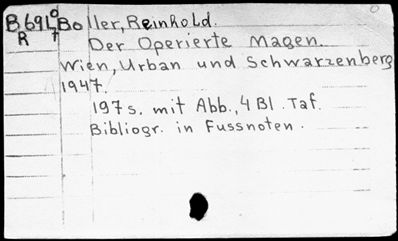 B691 Boller, Reinhold.
R 7 Der Operierte Magen.
Wien, Urban und Schwarzenberg
1947.
197 s. mit Abb., 4 Bl. Taf.
Bibliogr. in Fussnoten.